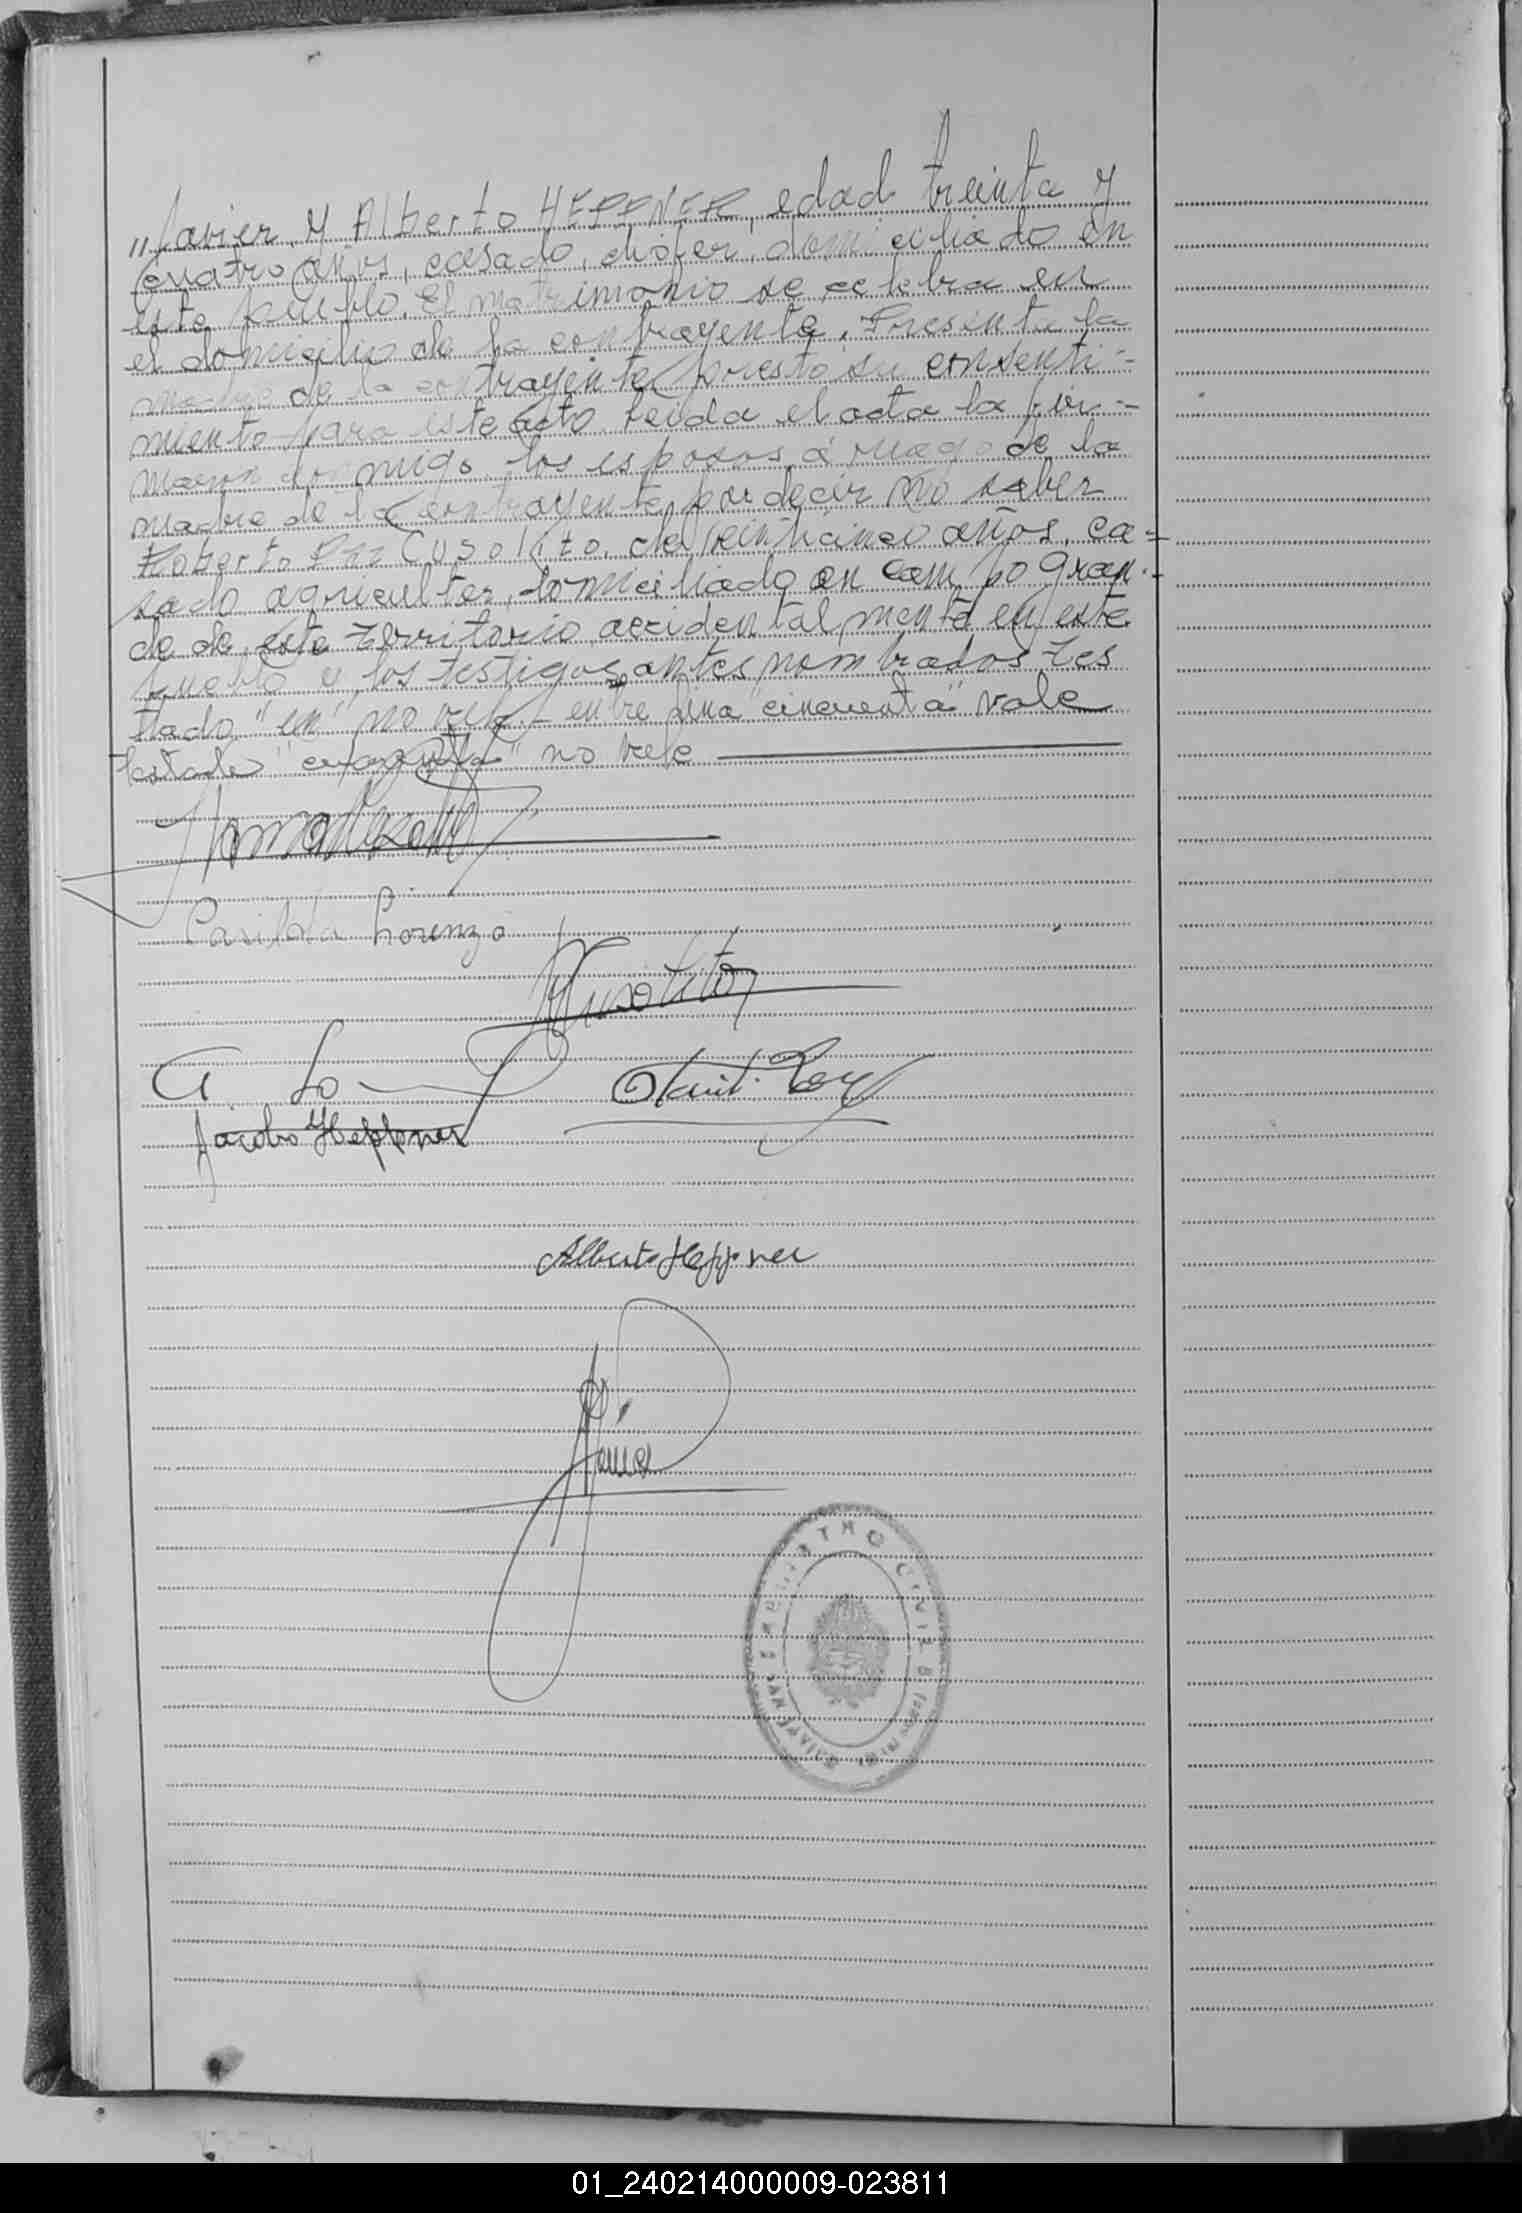 "Javier, y Alberto HEPPNER, edad treinta y
cuatro años, casado, chófer, domiciliado en
este pueblo. El matrimonio se celebra en
el domicilio de la contrayente. Presente la
madre de la contrayente prestó su consenti-
miento para este acto. Leida el acta la fir-
maron conmigo los esposos, á ruego de la
madre de la contrayente por decir no saber
Roberto Cusolito, de veinticinco años, ca-
sado agricultor, domiciliado en Campo Gran-
de de este Territorio accidentalmente en este
pueblo y los testigos antes nombrados Tes
tado "en" no vale - entre linea "cincuenta" vale
testado no vale
Casilda Lorenzo
Cusolito
Jacobo Heppner
Alberto Heppner
REGISTRO CIVIL
01_240214000009-023811